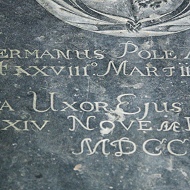 ERMANUS POLE
T XXVIII° MARTII
A UXOR EJUS
XIV NOVEMB
MDCC